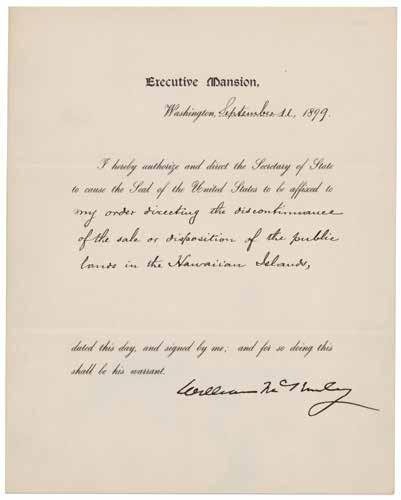 Executive Mansion,
Washington, September 11, 1899.
I hereby authorize and direct the Secretary of State
to cause the Seal of the United States to be affixed to
my order directing the discontinuance
of the sale or disposition of the public
lands in the Hawaiian Islands,
dated this day, and signed by me; and for so doing this
shall be his warrant.
William McKinley